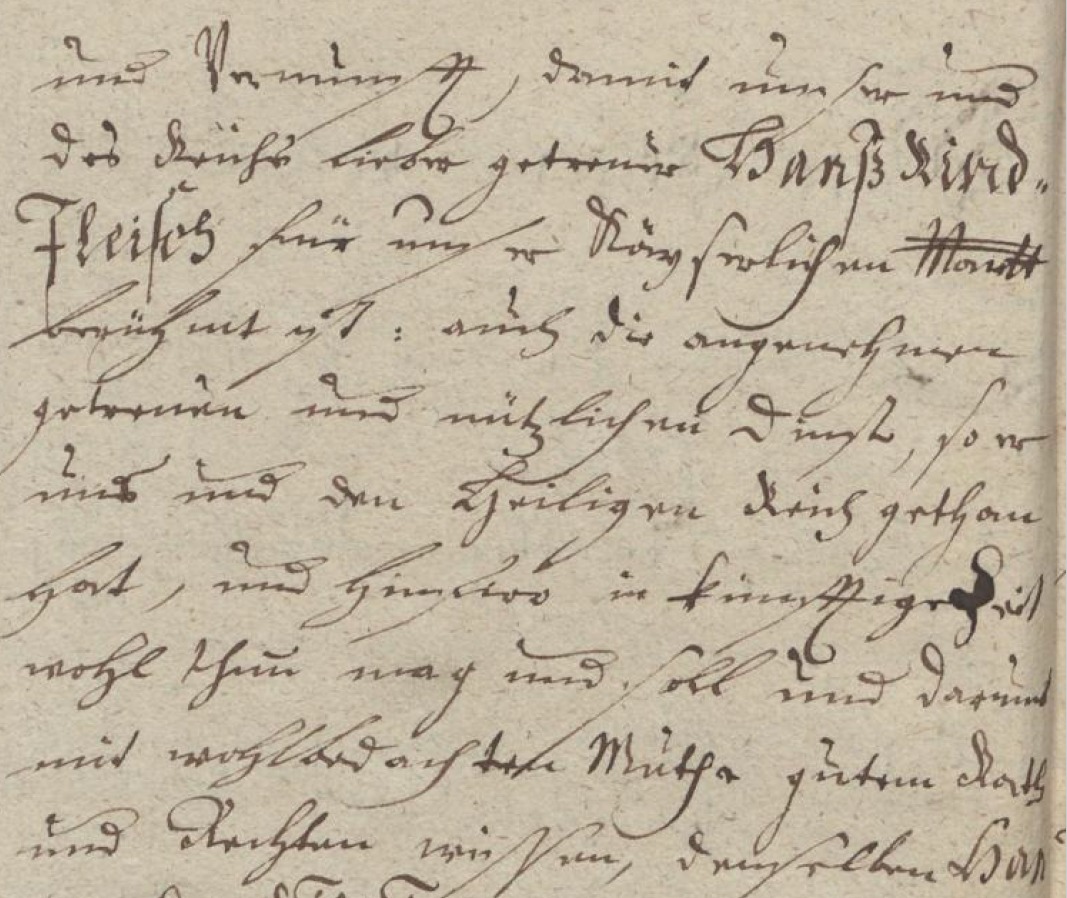 und Vernunfft, damit unser und
des Reichs lieber getreuer Hanß Rind-
Fleisch für unser Käyserlichen
berühmt ist: auch die angenehmen
getreuen und nützlichen Dinst, so er
uns und den Heiligen Reich gethan
hat, und hinfüro in künfftiger Zeit
wohl thun mag und soll und darumb
mit wohlbedachten Muthe gutem Rath
und Rechten wissen, demselben Han